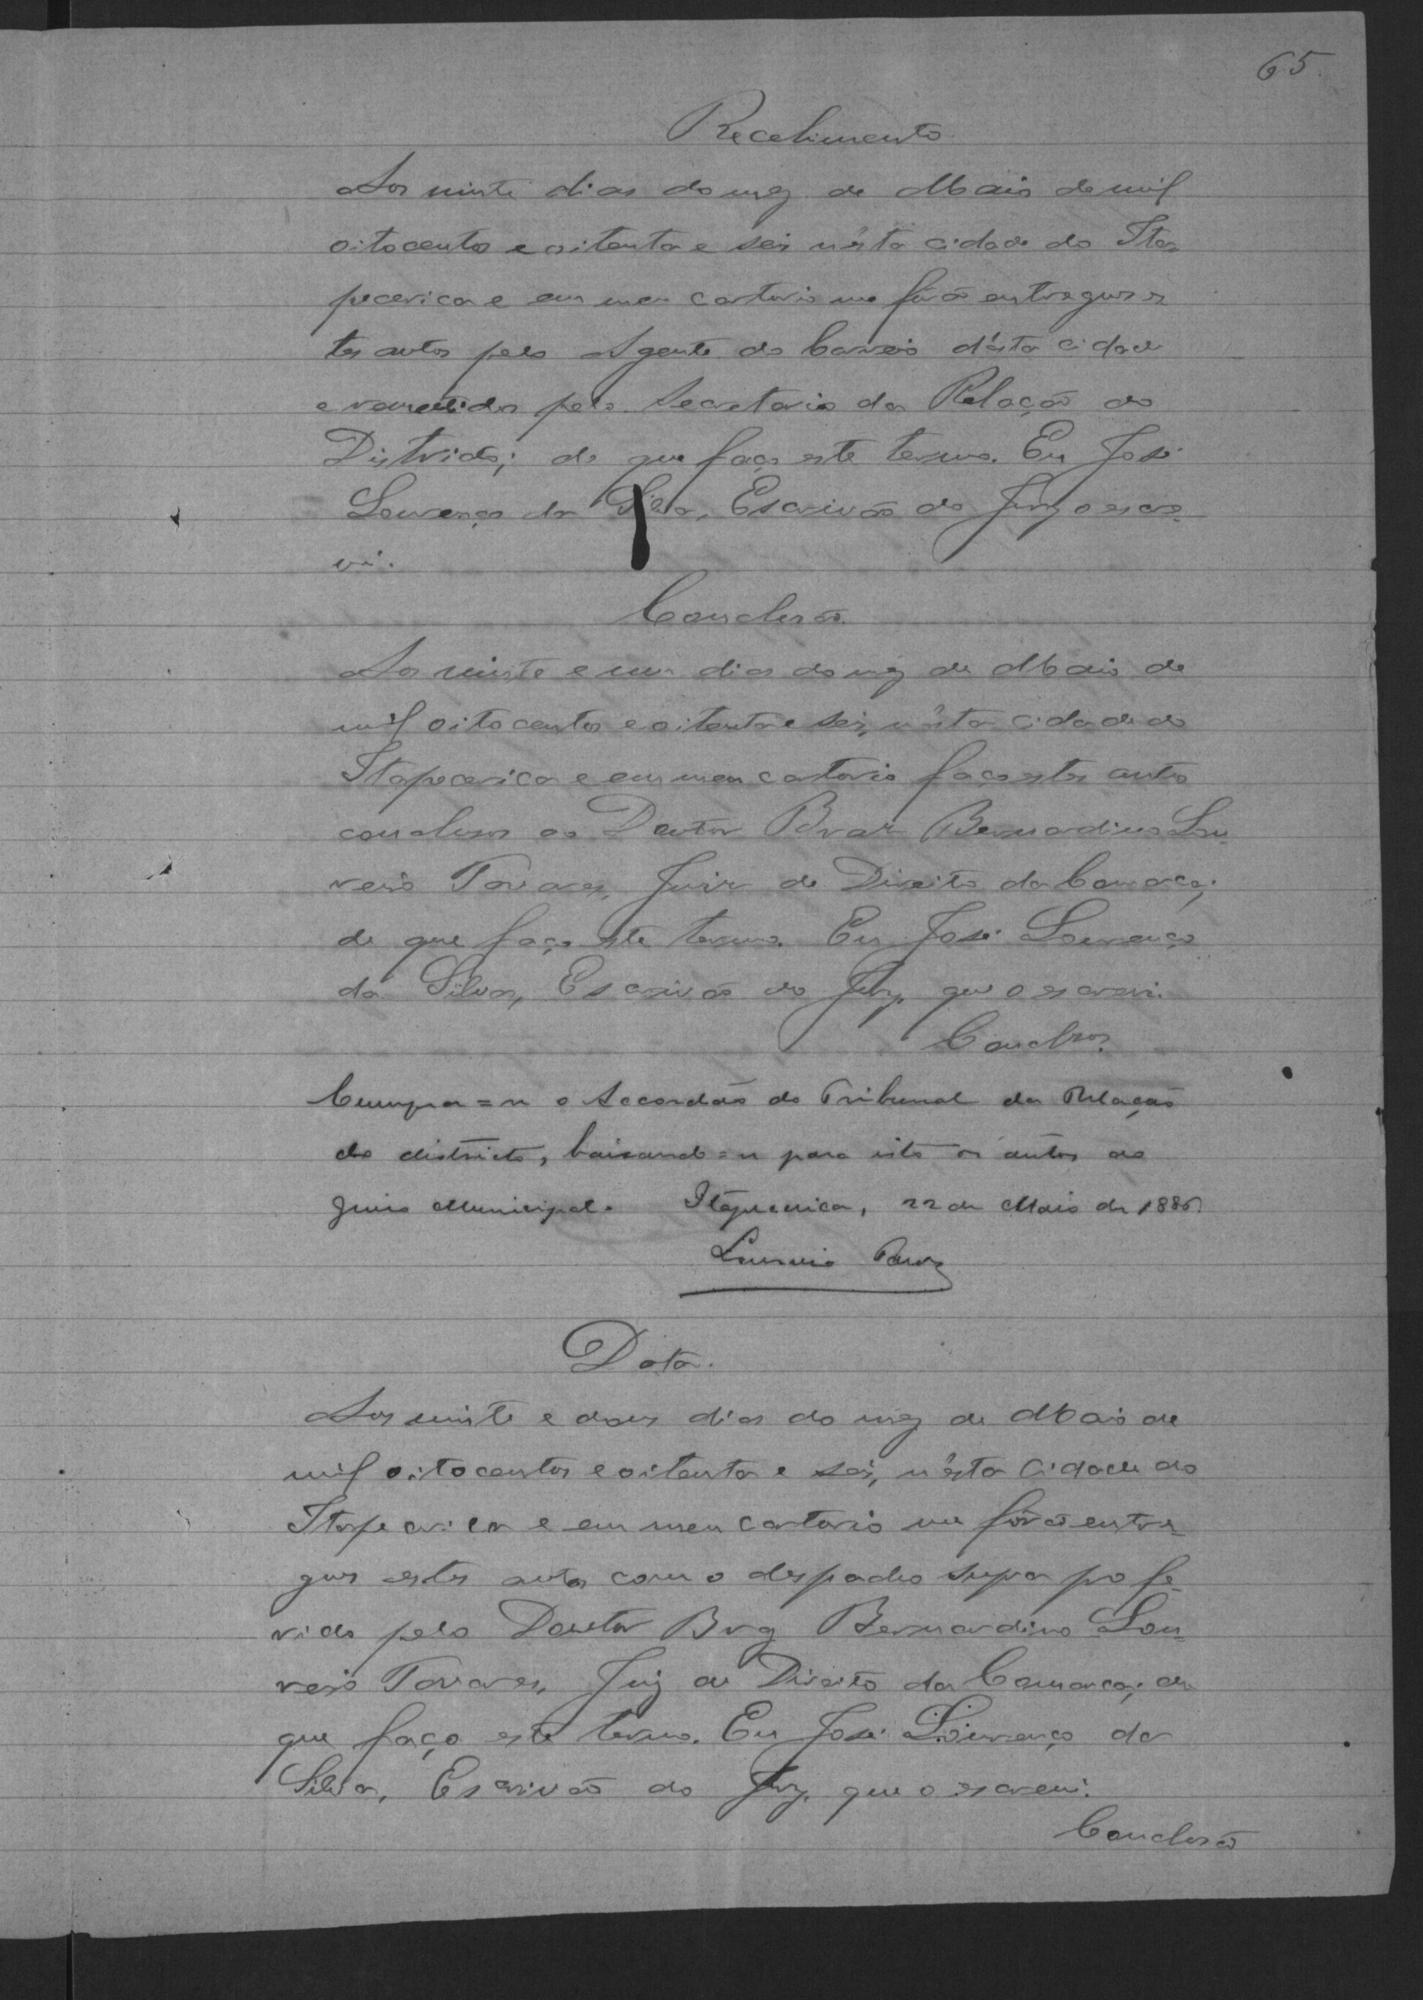 65.
Recebimento
Aos vinte dias do mez de Maio de mil
oitocentos e oitenta e seis n'esta cidade de Ita
pecerica e em meu cartorio me fôrão entregues es
tes autos pelo Agente do Correio d'ésta cidade
e remettidos pelo Secretario da Relação do
Districto; do que faço este termo. Eu José
Lourenço da Silva, Escrivão do Jury o escre
vi.
Conclusão.
Aos vinte e um dias do mez de Maio de
mil oitocentos e oitenta e seis, n'ésta cidade de
Itapecerica e em meu cartorio faço estes autos
conclusos ao Doutor Braz Bernardino Lou
reiro Tavares, Juiz de Direito da Comarca;
de que faço este termo. Eu José Lourenço
da Silva, Escrivão do Jury, que o escrevi.
Conclsos.
Cumpra=se o Accordão do Tribunal da Relação
do districto, baixando=se para isto os autos ao
Juizo Municipal. Itapecerica, 22 de Maio de 1886.
Loureiro Tavares
Data.
Aos vinte e dous dias do mez de Maio de
mil oitocentos e oitenta e seis, n'ésta cidade de
Itapecerica e em meu cartorio me fôrão entre
gues estes autos com o despacho supra profe
rido pelo Doutor Braz Bernardino Lou
reiro Tavares, Juiz de Direito da Comarca; de
que faço este termo. Eu José Lourenço da
Silva, Escrivão do Jury, que o escrevi.
Conclusão